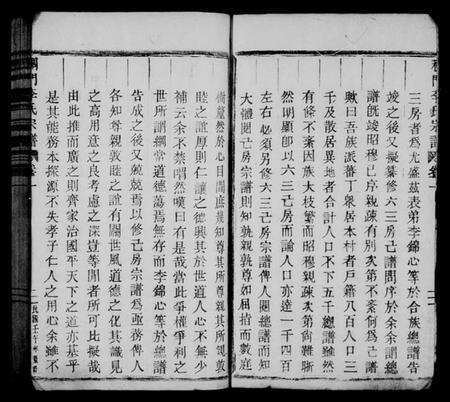 三房者為尤盛茲表弟李錦心等於合族總譜告
竣之後又擬纂修六三己房譜問序於余余謂總
譜既竣昭穆已序親疎有別次第不紊何為己譜
歟曰吾族派蕃丁衆居本村者戶籍八百人口三
千及散居異地者合計人口不下五千總譜雖然
有條不紊因族大枝繁而昭穆親疎次第尚難晰
然明顯即以六三己房而論人口亦達一千四百
左右必須另修六三己房宗譜俾人閱總譜而知
大體閱己房宗譜則知孰親孰尊如屈指而數庭
樹釐然於心目間庶莫知其所親孰
睦之誼原則仁讓之德興其於世道人心不無少
補云余不禁喟然嘆曰有是哉當此爭權爭利之
世所謂綱常道德蕩焉無存而李錦心等於總譜
告成之後又兢兢焉以修己房宗譜為亟務俾人
各知尊親敦睦之誼有關世風道德之化其識見
之高用意之良考慮之深豈等閒者所可比擬哉
由此推而廣之則齊家治國平天下之道亦基乎
是其能務本探源不失孝子仁人之用心余雖不
李氏宗譜
卷一